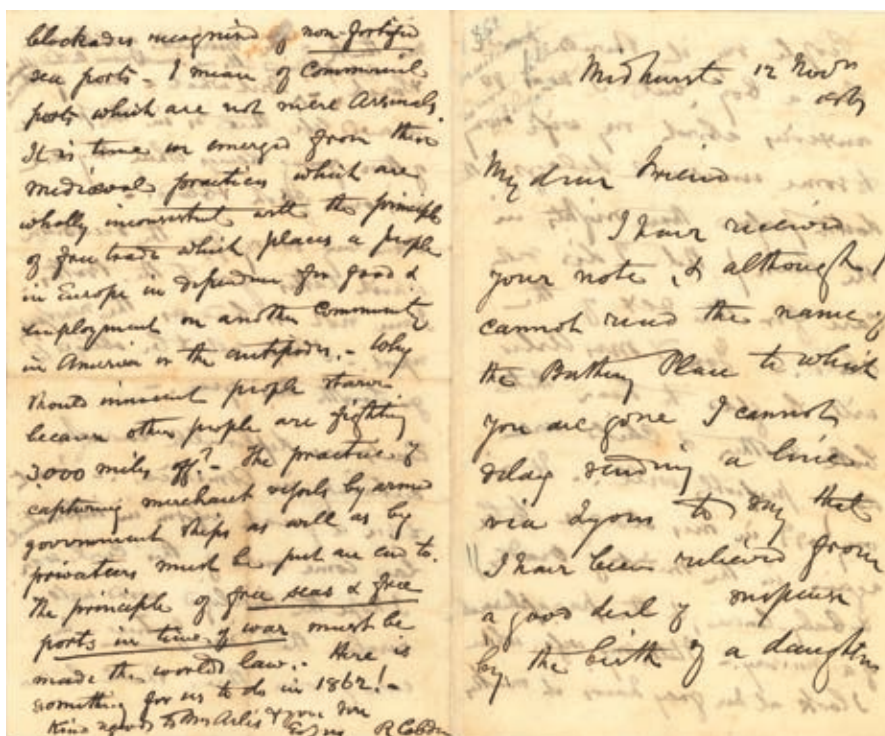 blockades recognised of non-fortified
sea ports - I mean of Commercial
ports which are not mere Arsenals.
It is time we emerged from these
mediæval practices which are
wholly inconsistent with the principle
of free trade which places a people
in Europe in dependence for food &
employment on another Community
in America or the antipodes. - Why
should innocent people starve
because other people are fighting
3,000 miles off? - The practice of
capturing merchant vessels by armed
government ships as well as by
privateers must be put an end to.
The principle of free seas & free
ports in time of war must be
made the world's law. - Here is
something for us to do in 1862! -
Kind regards to Mrs Arlès & your son
R Cobden
Midhurst 12 Novr
My dear Friend
I have received
your note, & although I
cannot read the name of
the Bathing Place to which
you are gone I cannot
delay sending a line
via Lyons to say that
I have been relieved from
a good deal of suspense
by the birth of a daughter